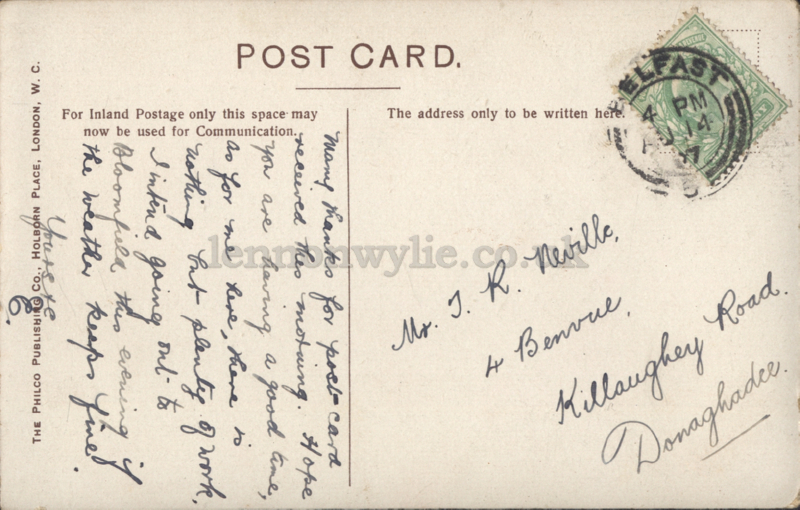 POST CARD.
For Inland Postage only this space may
now be used for Communication.
The address only to be written here.
THE PHILCO PUBLISHING CO., HOLBORN PLACE, LONDON, W. C.
Many thanks for post-card
received this morning. Hope
you are having a good time,
as for me here, there is
nothing but plenty of work.
I intend going out to
Bloomfield this evening if
the weather keeps fine.
Yours &c
E.
Mr. J. R. Neville,
4 Benvue,
Killaughey Road.
Donaghadee.
BELFAST
4 PM
14
lennonwylie.co.uk